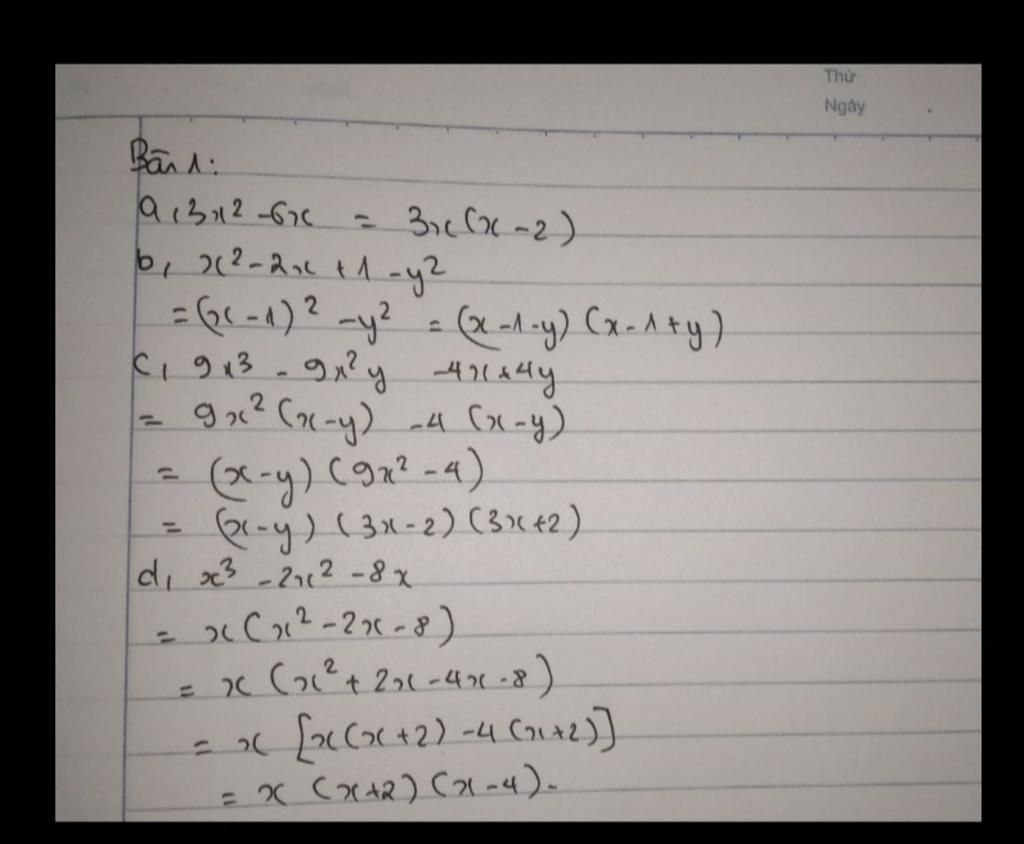 Thứ
Ngày
Bài 1:
a, 3x² - 6x = 3x(x - 2)
b, x² - 2x + 1 - y²
= (x - 1)² - y² = (x - 1 - y) (x - 1 + y)
c, 9x³ - 9x²y - 4x + 4y
= 9x² (x - y) - 4 (x - y)
= (x - y) (9x² - 4)
= (x - y) (3x - 2) (3x + 2)
d, x³ - 2x² - 8x
= x (x² - 2x - 8)
= x (x² + 2x - 4x - 8)
= x [x(x + 2) - 4 (x + 2)]
= x (x + 2) (x - 4).